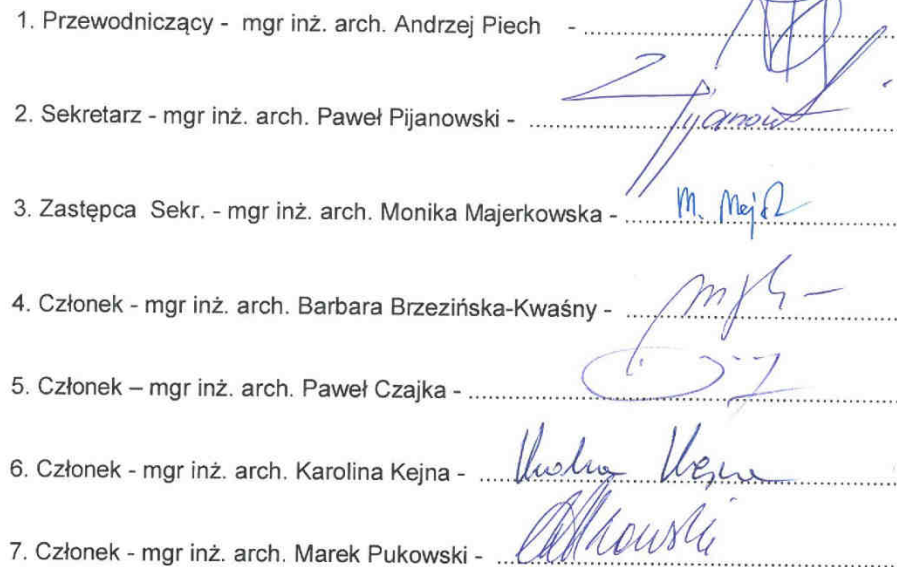 1. Przewodniczący - mgr inż. arch. Andrzej Piech - ........................
2. Sekretarz - mgr inż. arch. Paweł Pijanowski - ........................
3. Zastępca Sekr. - mgr inż. arch. Monika Majerkowska - ........................
4. Członek - mgr inż. arch. Barbara Brzezińska-Kwaśny - ........................
5. Członek – mgr inż. arch. Paweł Czajka - ........................
6. Członek - mgr inż. arch. Karolina Kejna - ........................
7. Członek - mgr inż. arch. Marek Pukowski - ........................